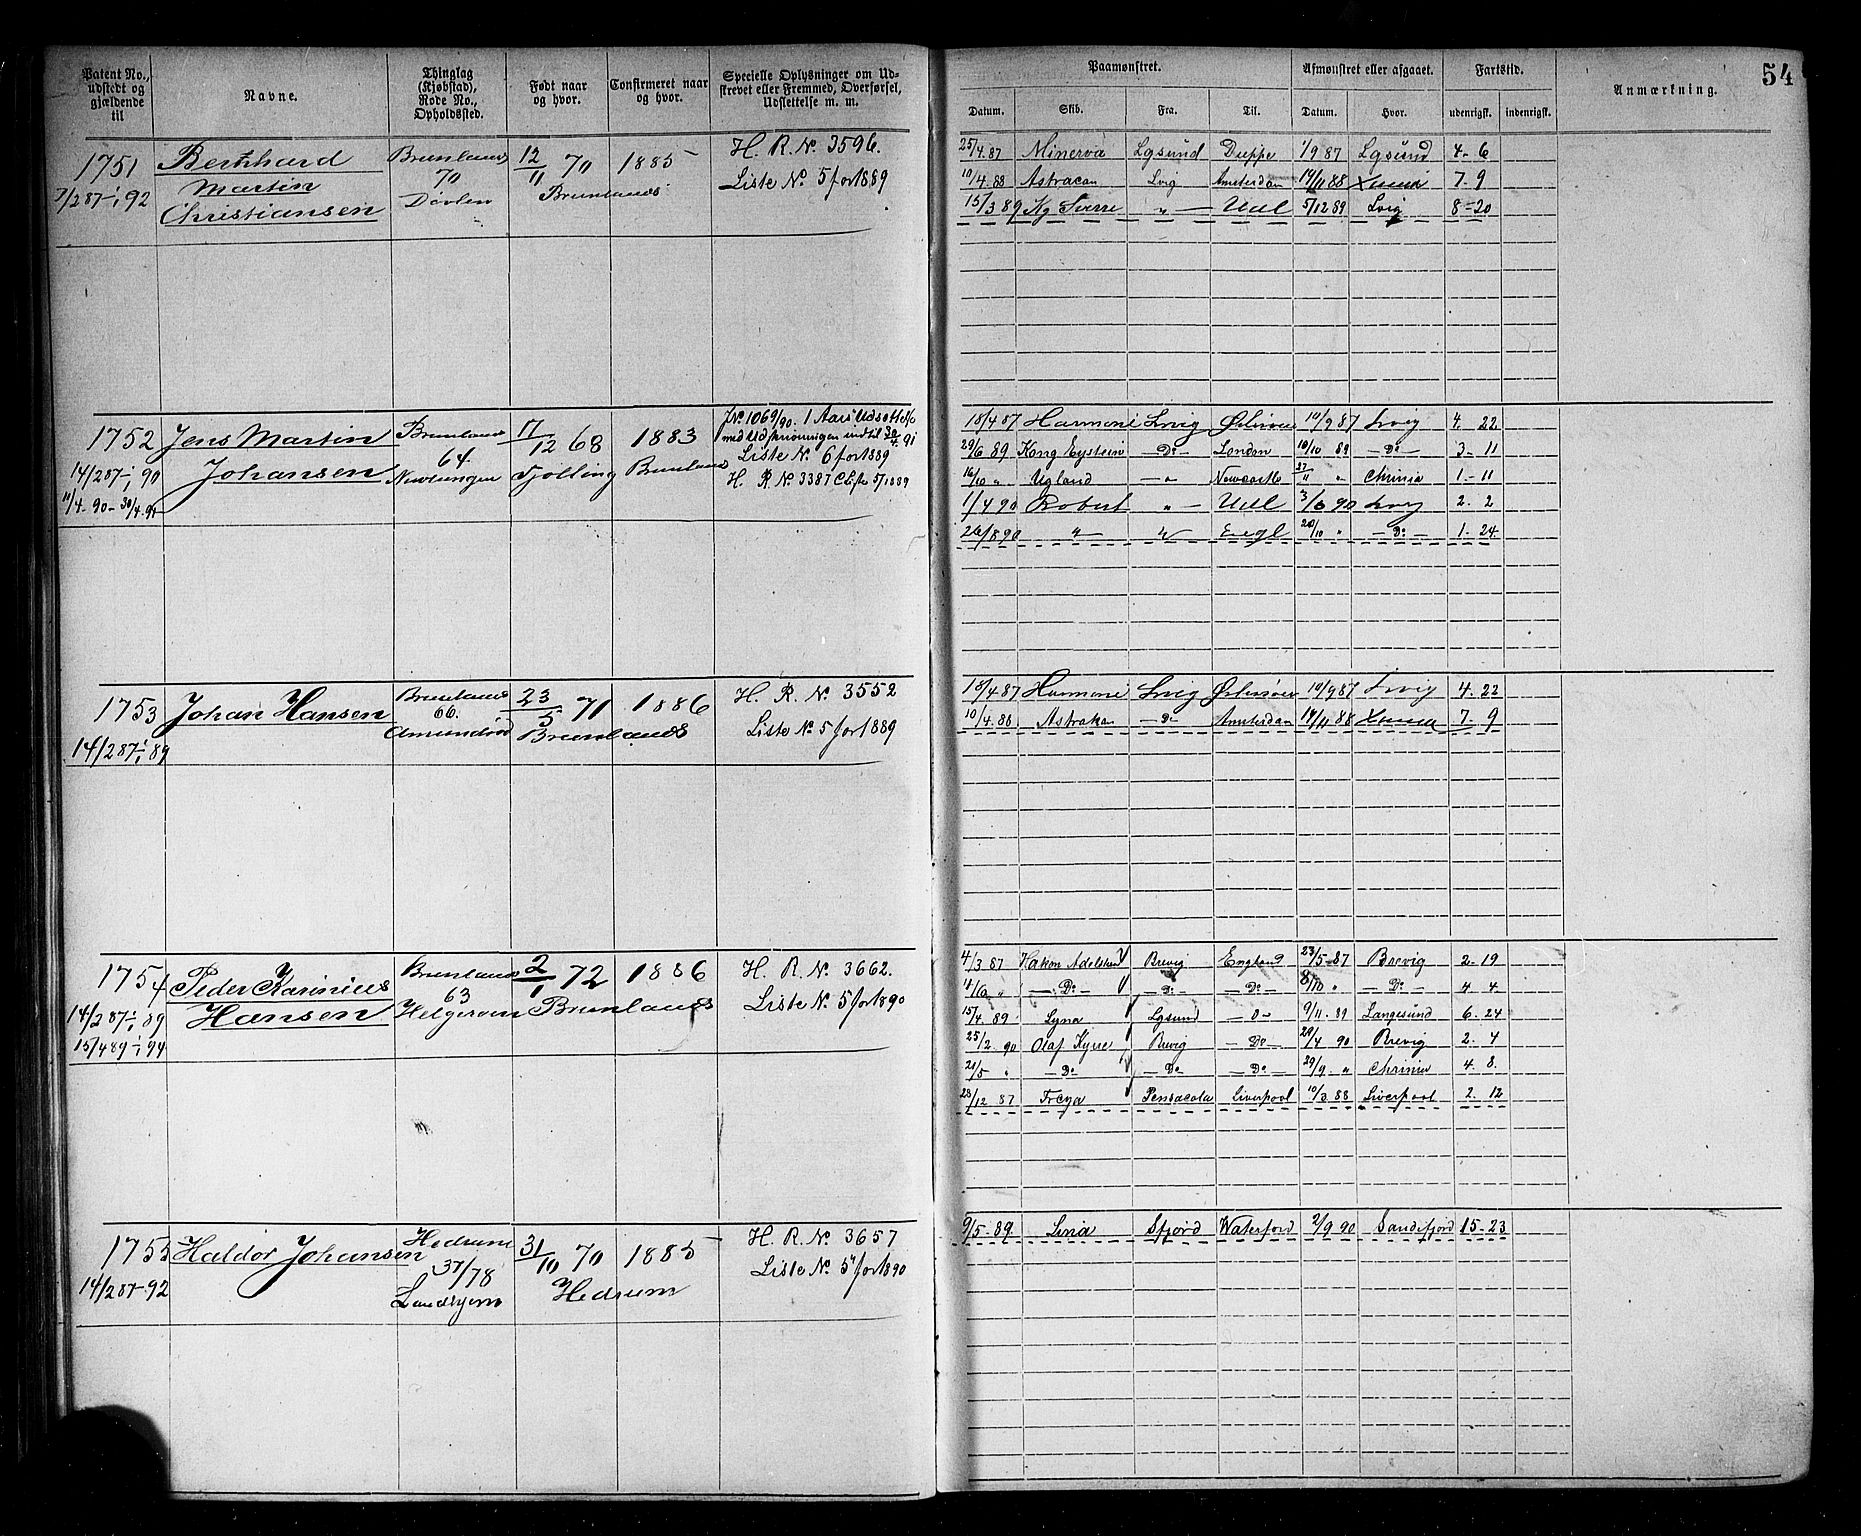 54
Patent No., udstedt og gjældende til
Navne.
Thinglag (Kjøbstad), Rode No., Opholdssted.
Født naar og hvor.
Confirmeret naar og hvor.
Specielle Oplysninger om Udskrevet eller Fremmed, Overførsel, Udsættelse m. m.
Paamønstret.
Afmønstret eller afgaaet.
Fartstid.
Anmærkning.
Datum. Skib. Fra. Til. Datum. Hvor. udenrigsk. indenrigsk.
1751 Bernhard Brunlanes 12/11 70 1885 H. R. No 3596.
Martin 70 Brunlanes Liste No 5 for 1889
7/2 87-1/1 92 Christiansen
25/4.87 Minerva Lgsund Dieppe 1/9 87 Lgsund 4-6
10/4.88 Astracan Lvig Amsterdam 14/11 88 7-9
15/3 89 Kg Sverre " Udl 5/12 89 Lvig 8-20
1752 Jens Martin Brunlanes 17/12 68 1883 JNo 1069/90. 1 Aars Udsættelse
med Udskrivningen indtil 30/4 91
14/2 87-1/1 90 Johansen 64. Tjølling Brunlanes Liste No 6 for 1889
11/4-90-30/4.91 H. R No 3387 5/7 1889
18/4 87 Harmoni Lvig 10/9 87 Lvig 4. 22
29/6 89 Kong Eystein Do London 10/10 89 Do 3-11
16/10 " Ugland " Newcastle 27/11 " Chrinia 1-11
1/4 90 Robert " Udl 3/6 90 Lvig 2. 2
26/8 90 " " Engl 20/10 " Do 1. 24
1753 Johan Hansen Brunlanes 23/5 71 1886 H. R. No 3552
66. Liste No 5 for 1889
14/2 87-1/1 89 Amundrød Brunlanes
18/4 87 Harmoni Lvig 10/9 87 Lvig 4. 22
10/4.88 Astrakan Do Amsterdam 14/11 88 7-9
1754 Peder Karinius Brunlanes 2/1 72 1886 H. R. No 3662.
14/2 87-1/1 89 Hansen 63 Helgeroen Brunlanes Liste No 5 for 1890
15/4 89-1/1 94
4/3 87 Hakon Adelsten Brevig England 23/5-87 Brevig 2-19
4/6 " Do Do Do 8/10 " Do 4. 4
15/4.89 Lyna Lgsund Do 9/11.89 Langesund 6. 24
25/2 90 Olaf Kyrre Brevig Do 29/4 90 Brevig 2. 4
21/5 " Do Do Do 29/9. " Chrinia 4. 8.
28/12 87 Freya Pensacola Liverpool 10/3 88 Liverpool 2. 12
1755 Haldor Johansen Hedrum 31/10 70 1885 H. R. No 3657
37/78 Liste No 5 for 1890
14/2 87-92 Hedrum
9/5-89. Lina Sfjord Waterford 2/9 90 Sandefjord 15-23